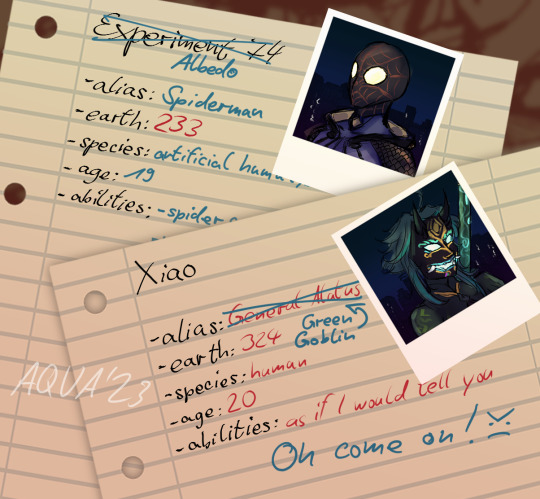 Experiment 14
Albedo
-alias: Spiderman
-earth: 233
-species: artificial human
-age: 19
-abilities: -spider
Xiao
-alias: General Alatus
Green
Goblin
-earth: 324
-species: human
-age: 20
-abilities: as if I would tell you
Oh come on!
AQVA'23